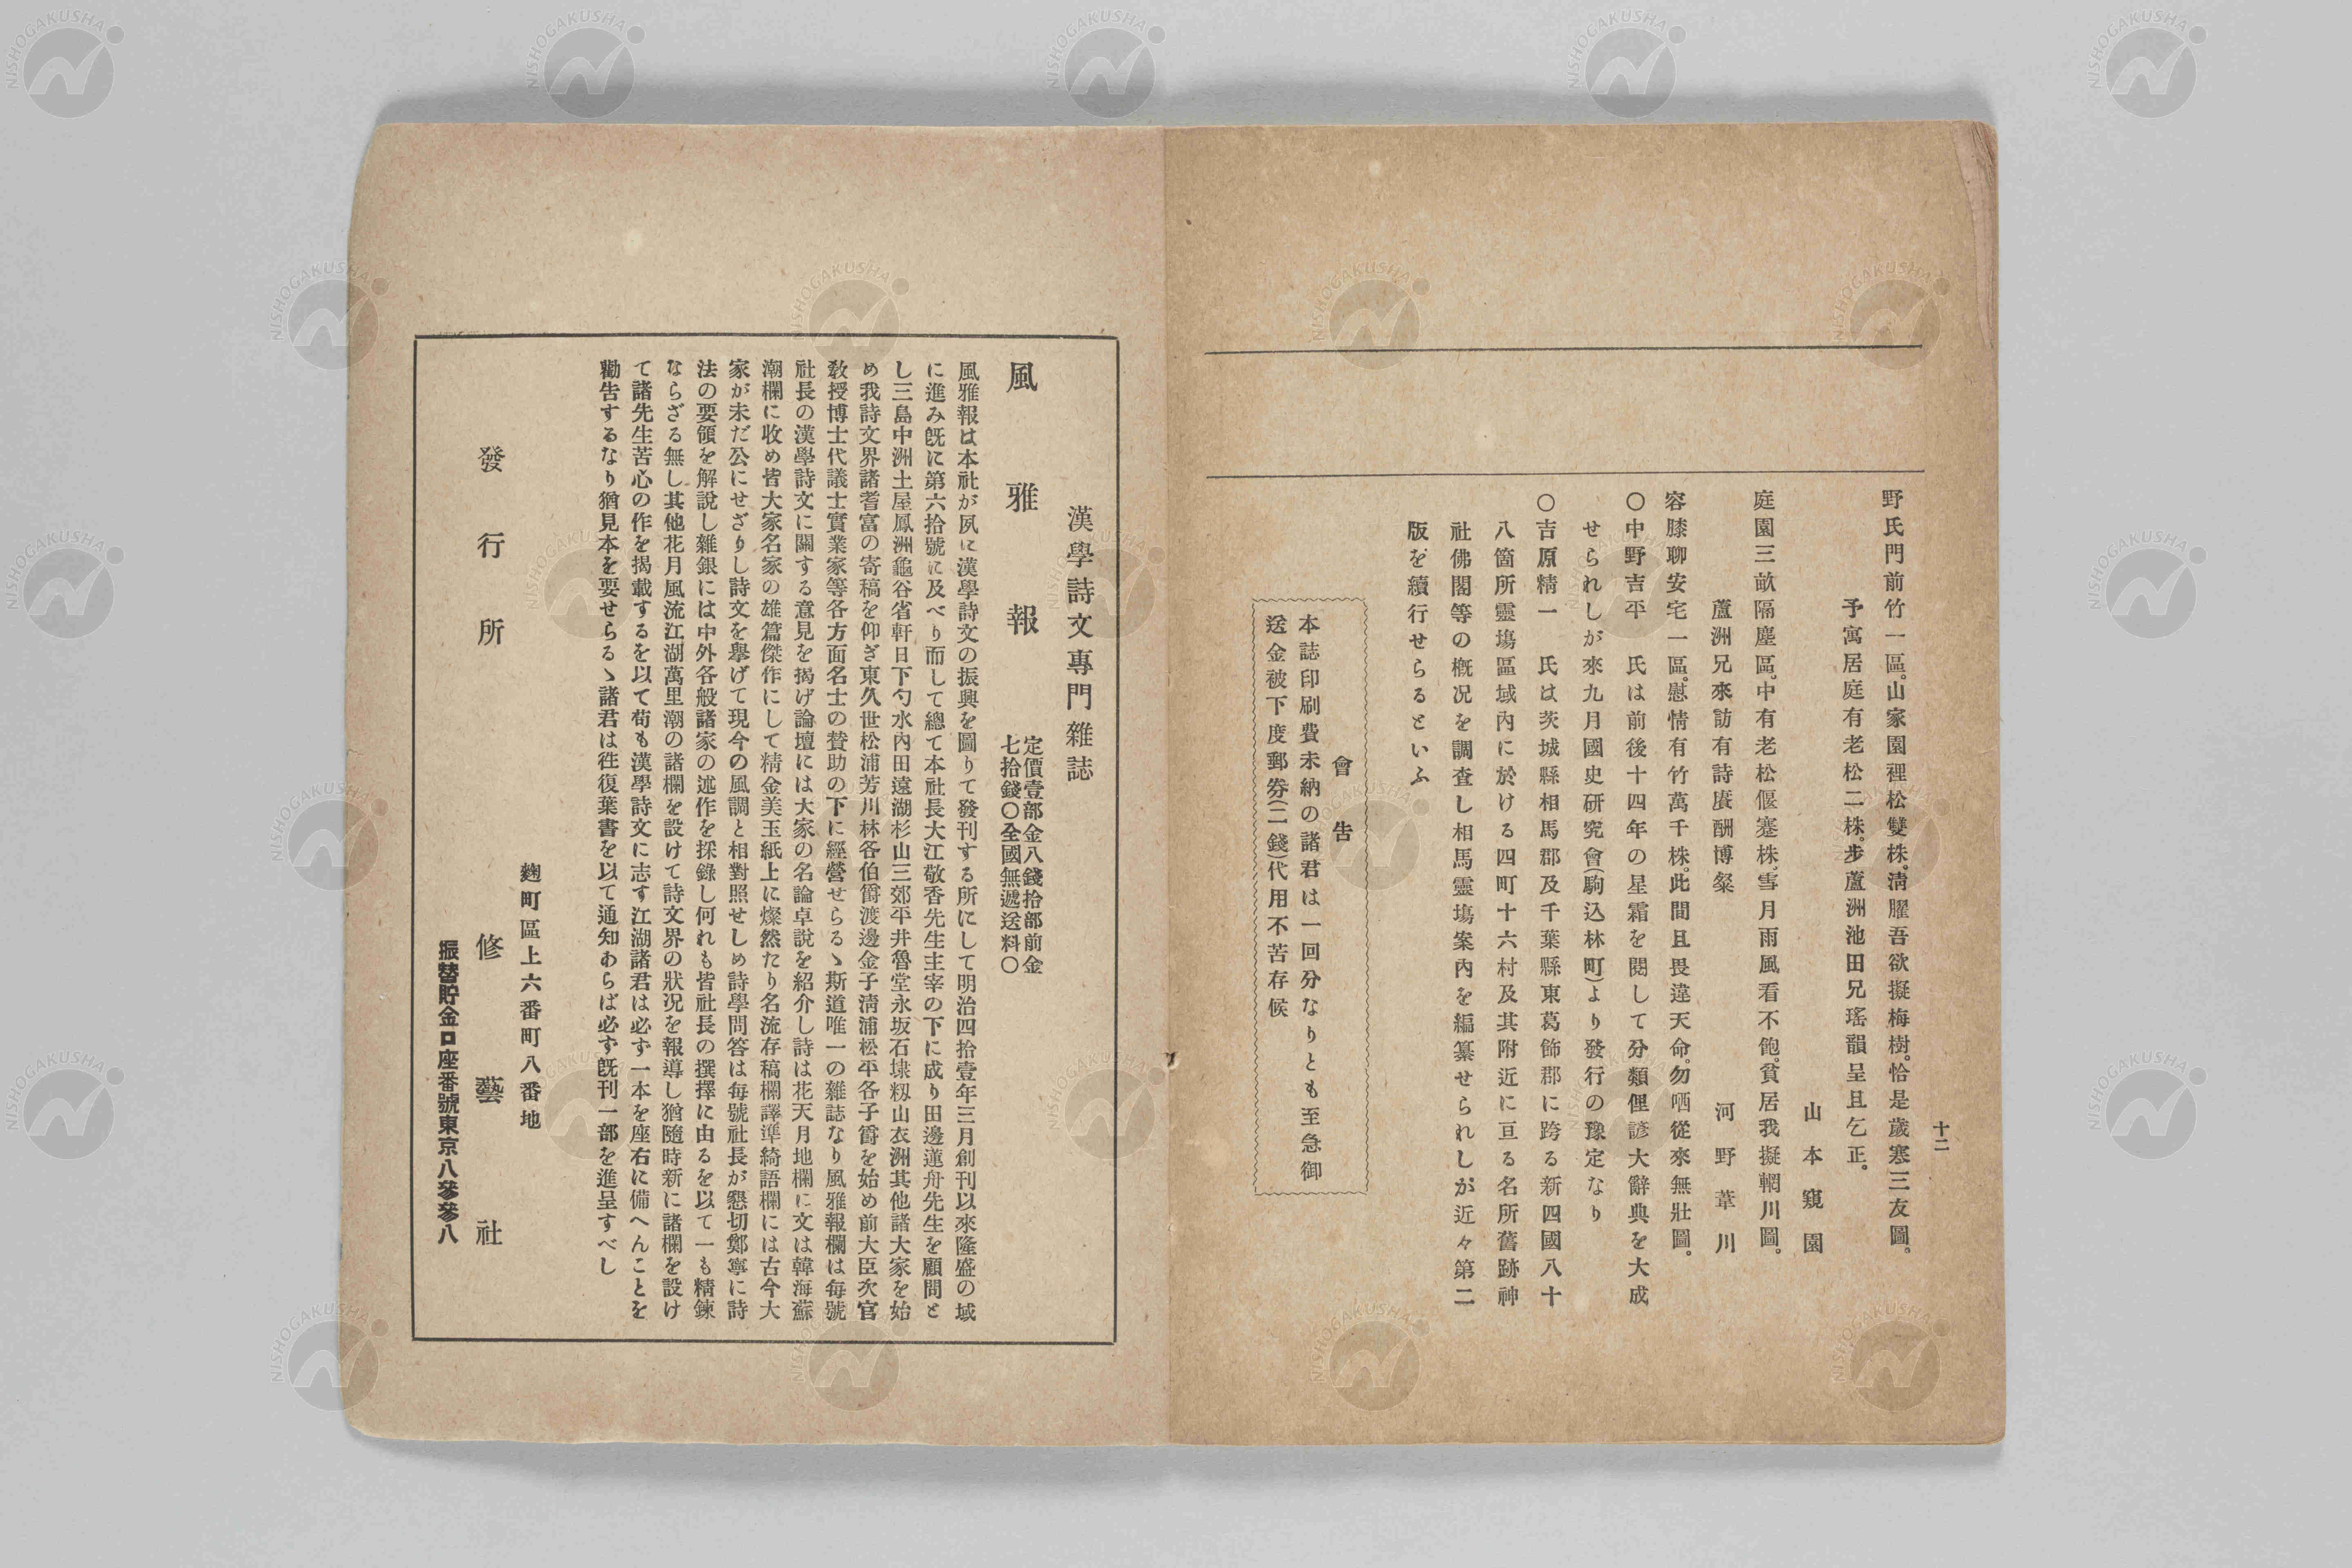 十二
野氏門前竹一區。山家園裡松雙株。淸臞吾欲擬梅樹。恰是歲寒三友圖。
予寓居庭有老松二株。步蘆洲池田兄瑤韻呈且乞正。
山本窺園
庭園三畝隔塵區。中有老松偃蹇株。雪月雨風看不飽。貧居我擬輞川圖。
蘆洲兄來訪有詩賡酬博粲
河野葦川
容膝聊安宅一區。慰情有竹萬千株。此間且畏違天命。勿哂從來無壯圖。
〇中野吉平　氏は前後十四年の星霜を閱して分類俚諺大辭典を大成
せられしが來九月國史研究會(駒込林町)より發行の豫定なり
〇吉原精一　氏は茨城縣相馬郡及千葉縣東葛飾郡に跨る新四國八十
八箇所靈塲區域內に於ける四町十六村及其附近に亘る名所舊跡神
社佛閣等の槪況を調查し相馬靈塲案內を編纂せられしが近々第二
版を續行せらるといふ
會告
本誌印刷費未納の諸君は一回分なりとも至急御
送金被下度郵券(二錢)代用不苦存候
漢學詩文專門雜誌
風雅報
定價壹部金八錢拾部前金
七拾錢〇全國無遞送料〇
風雅報は本社が夙に漢學詩文の振興を圖りて發刊する所にして明治四拾壹年三月創刊以來隆盛の域
に進み旣に第六拾號に及べり而して總て本社長大江敬香先生主宰の下に成り田邊蓮舟先生を顧問と
し三島中洲土屋鳳洲龜谷省軒日下勺水內田遠湖杉山三郊平井魯堂永坂石埭籾山衣洲其他諸大家を始
め我詩文界諸耆富の寄稿を仰ぎ東久世松浦芳川林各伯爵渡邊金子淸浦松平各子爵を始め前大臣次官
敎授博士代議士實業家等各方面名士の贊助の下に經營せらるゝ斯道唯一の雜誌なり風雅報欄は每號
社長の漢學詩文に關する意見を揭げ論壇には大家の名論卓說を紹介し詩は花天月地欄に文は韓海蘇
潮欄に收め皆大家名家の雄篇傑作にして精金美玉紙上に燦然たり名流存稿欄譯準綺語欄には古今大
家が未だ公にせざりし詩文を擧げて現今の風調と相對照せしめ詩學問答は每號社長が懇切鄭寧に詩
法の要領を解說し雜銀には中外各般諸家の述作を採錄し何れも皆社長の撰擇に由るを以て一も精鍊
ならざる無し其他花月風流江湖萬里潮の諸欄を設けて詩文界の狀況を報導し猶隨時新に諸欄を設け
て諸先生苦心の作を揭載するを以て苟も漢學詩文に志す江湖諸君は必ず一本を座右に備へんことを
勸告するなり猶見本を要せらるゝ諸君は徃復葉書を以て通知あらば必ず旣刊一部を進呈すべし
麹町區上六番町八番地
發行所　修藝社
振替貯金口座番號東京八參參八